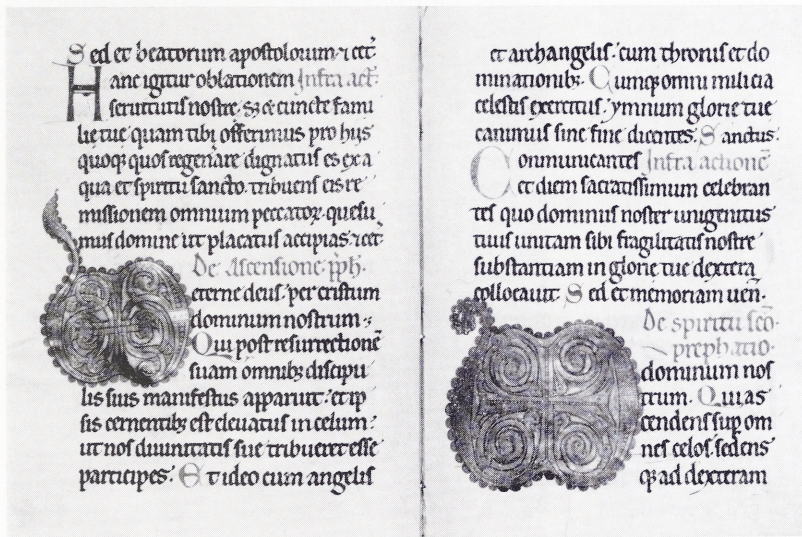 Sed et beatorum apostolorum ⁊ cet̄
Hanc igitur oblationem Infra act̄.
seruitutis nostre. sȝ ⁊ cuncte fami
lie tue quam tibi offerimus pro hiis
quoqȝ quos regen̄are dignatus es ex a
qua et spiritu sancto. tribuens eis re
missionem omnium peccatoꝝ. quesu
mus domine ut placatus accipias. ⁊ cet̄
De Ascensione p̄ph.
eterne deus. per cristum
dominum nostrum.
Qui post resurrectionē
suam omnibȝ discipu
lis suis manifestus apparuit. et ip
sis cernentibȝ est eleuatus in celum.
ut nos diuinitatis sue tribueret esse
participes. Et ideo cum angelis
et archangelis. cum thronis et do
minationibȝ. Cumqȝ omni milicia
celestis exercitus. ymnum glorie tue
canimus sine fine dicentes. Sanctus.
Communicantes Infra actionē
et diem sacratissimum celebran
tes quo dominus noster unigenitus
tuus unitam sibi fragilitatis nostre
substantiam in glorie tue dextera
collocauit. Sed et memoriam uen.
De spiritu sc̄o
prephatio.
dominum nos
trum. Qui as
cendens suꝑ om
nes celos. sedens
qȝ ad dexteram